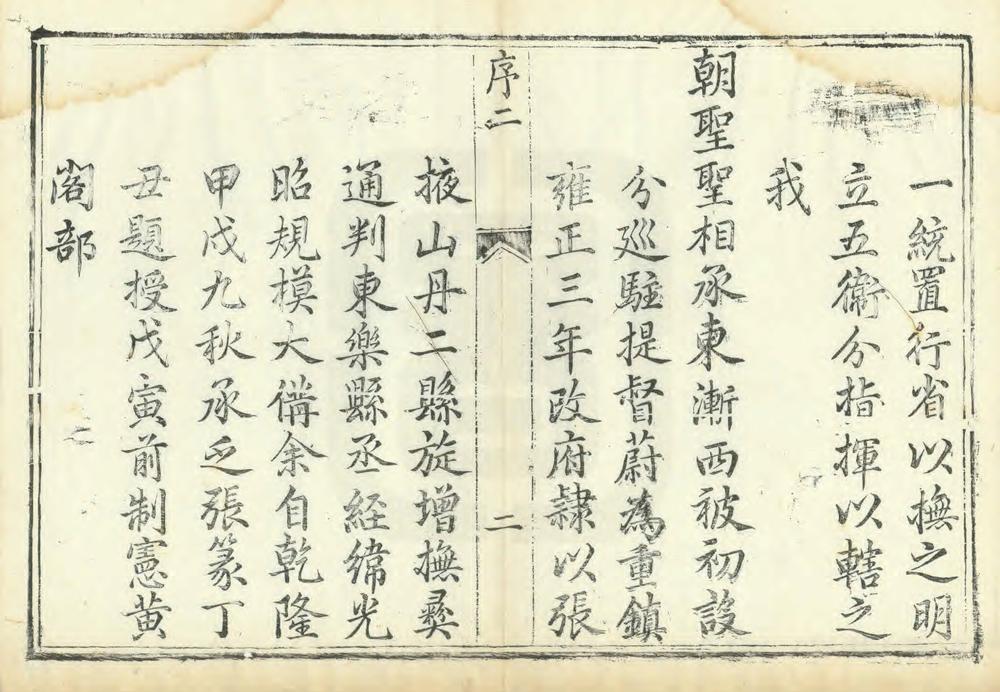 一統置行省以撫之明
立五衛分指揮以轄之
我
朝聖聖相承東漸西被初設
分巡駐提督蔚為重鎮
雍正三年改府隷以張
序二
二
掖山丹二縣旋增撫彜
通判東樂縣丞經緯光
昭規模大備余自乾隆
甲戌九秋承乏張篆丁
丑題授戊寅前制憲黃
閣部